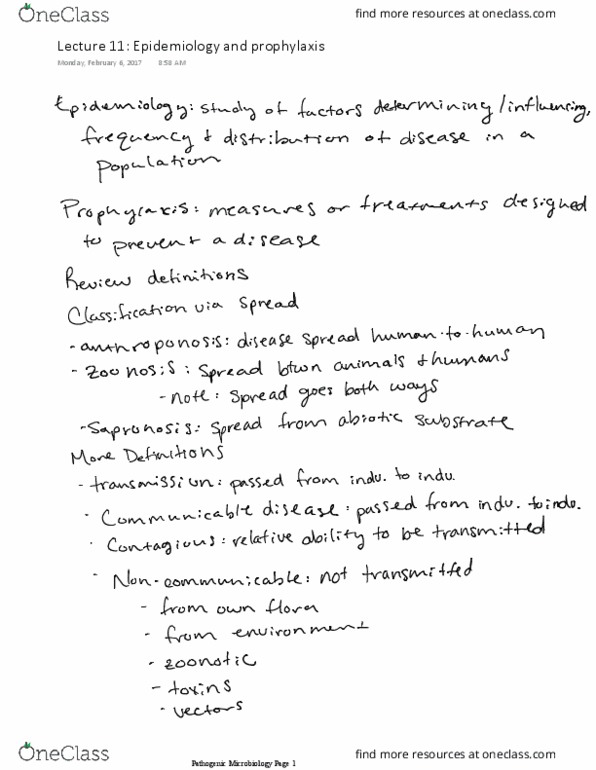 OneClass find more resources at oneclass.com
Lecture 11: Epidemiology and prophylaxis
Monday, February 6, 2017 8:58 AM
Epidemiology: study of factors determining/influencing,
frequency & distribution of disease in a
population
Prophylaxis: measures or treatments designed
to prevent a disease
Review definitions
Classification via spread
- anthroponosis: disease spread human-to-human
- Zoonosis: spread btwn animals & humans
- note: spread goes both ways
- Sapronosis: spread from abiotic substrate
More Definitions
- transmission: passed from indv. to indv.
- Communicable disease: passed from indv. to indv.
- Contagious: relative ability to be transmitted
- Non-communicable: not transmitted
- from own flora
- from environment
- zoonotic
- toxins
- vectors
OneClass find more resources at oneclass.com
Pathogenic Microbiology Page 1